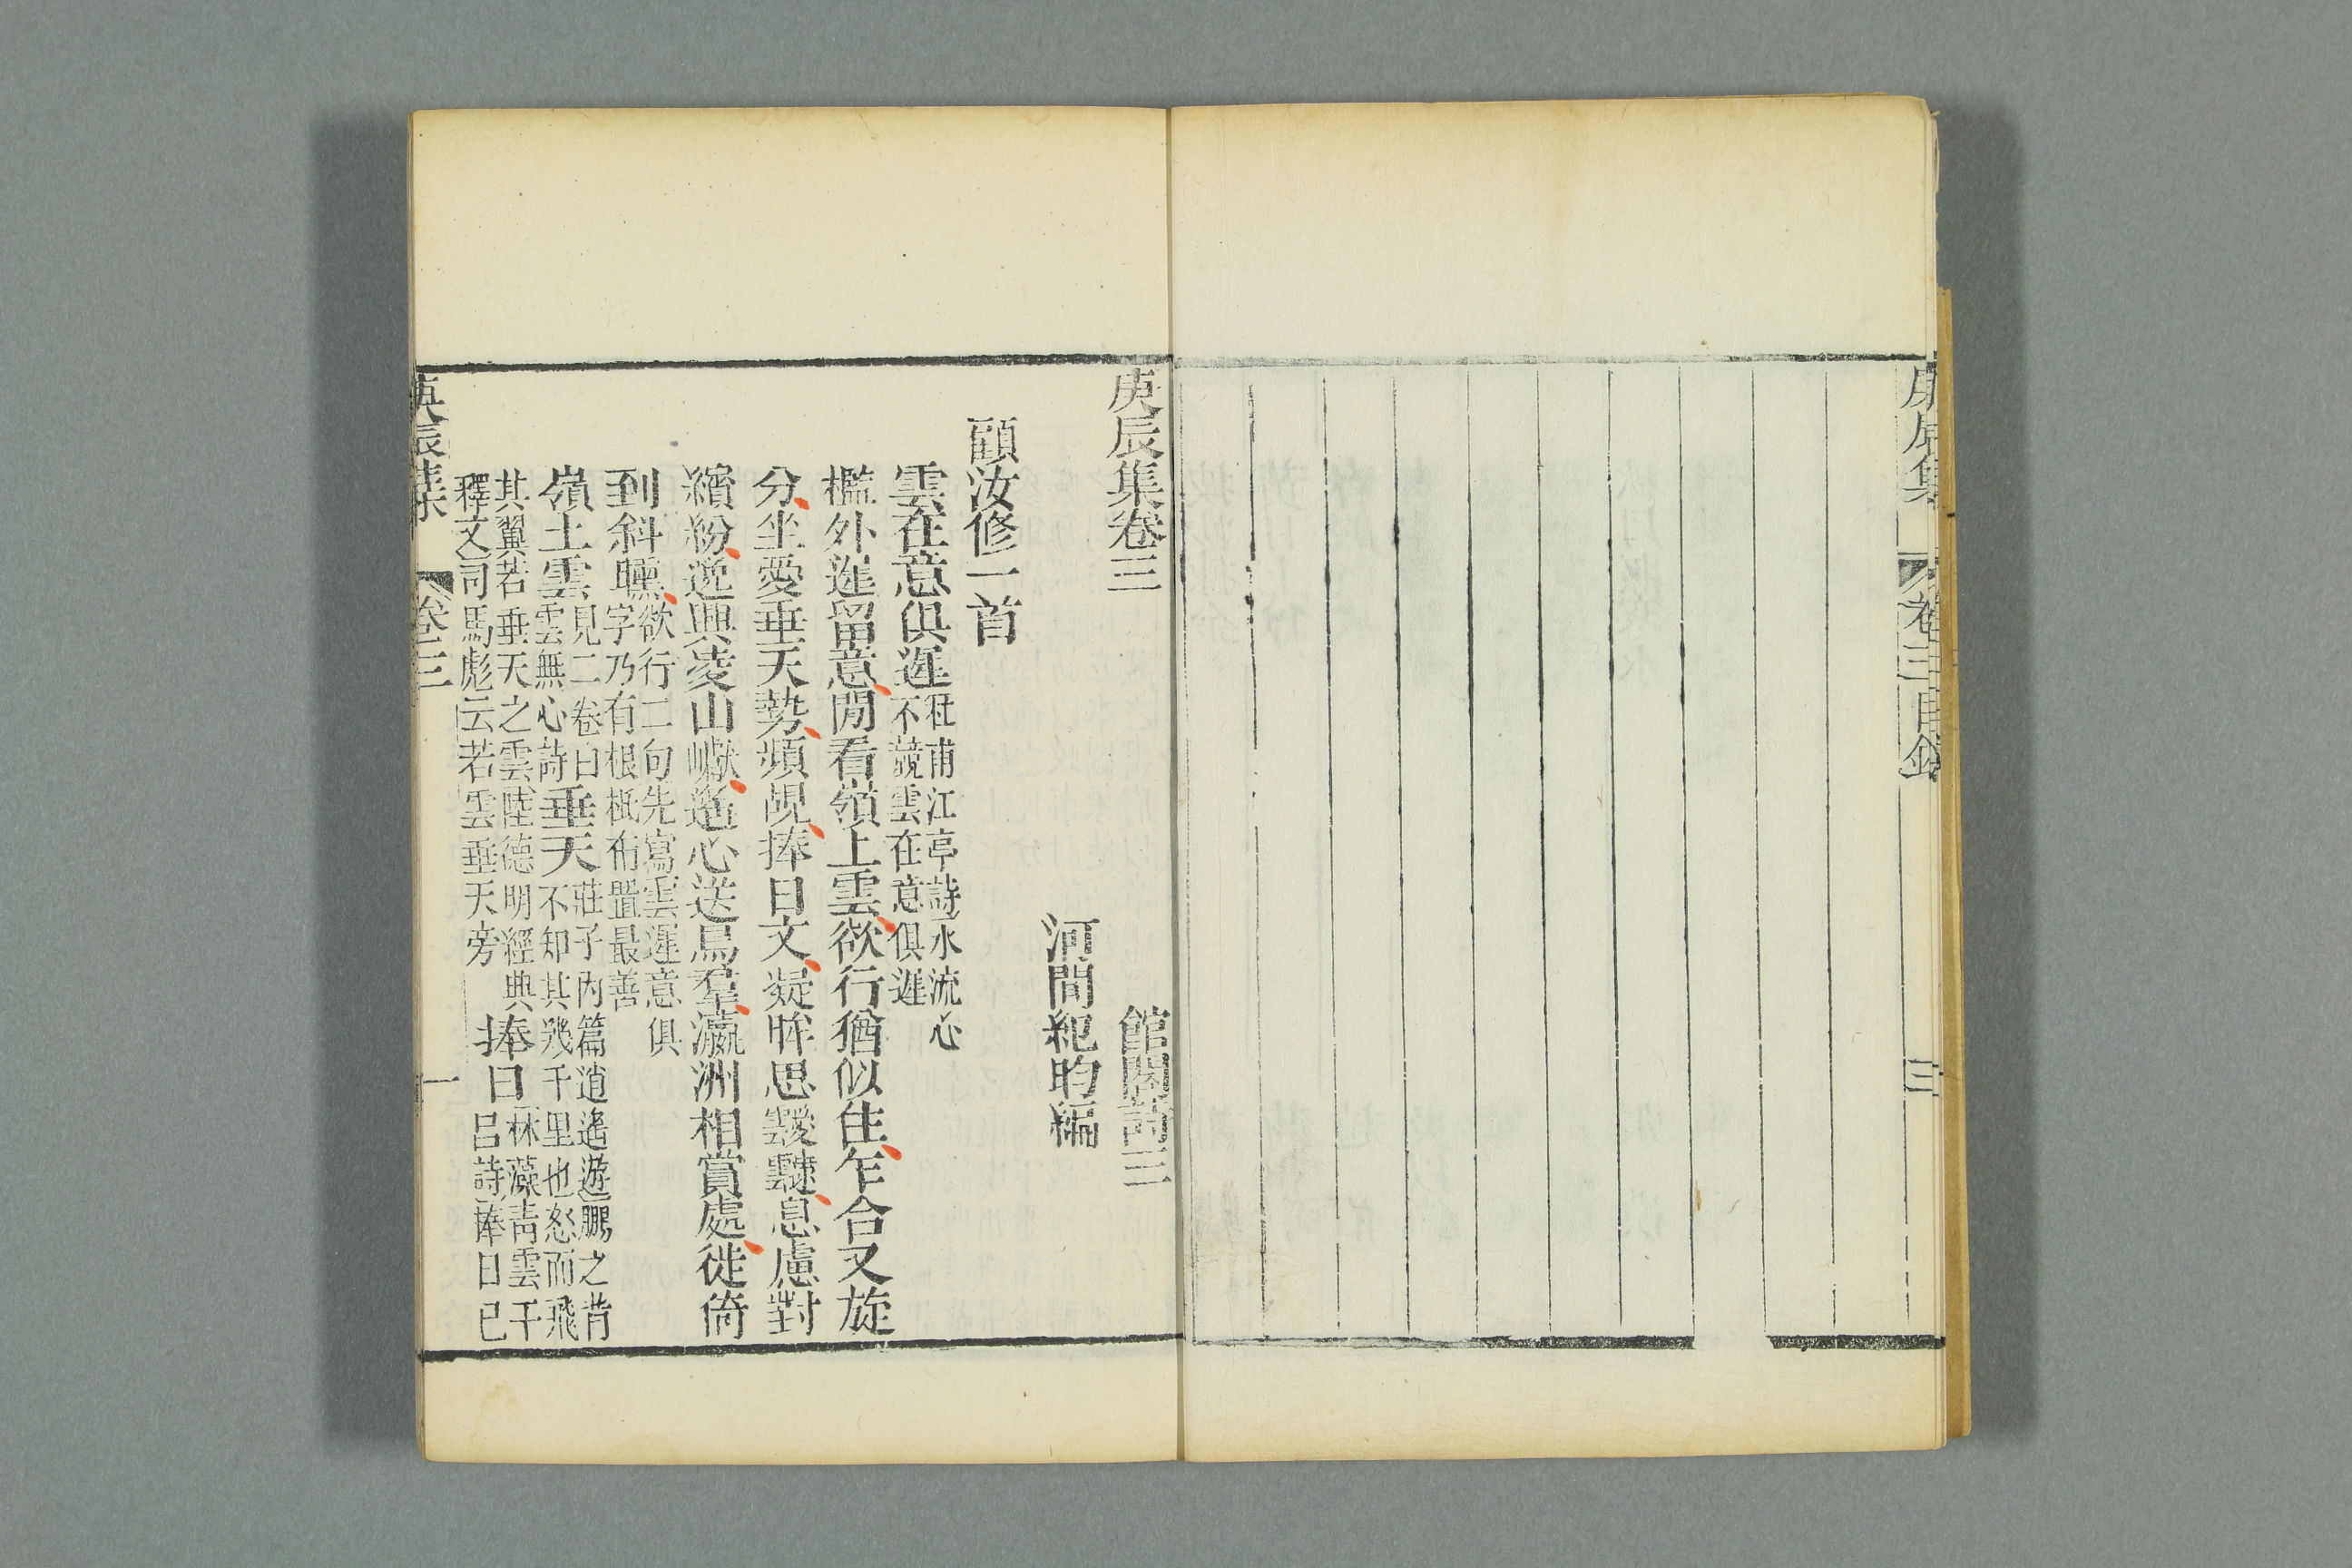 庚辰集
卷三目錄
三
庚辰集卷三
館閣詩三
河間紀昀編
顧汝修一首
雲在意俱遲
杜甫江亭詩水流心
不競雲在意俱遲
檻外遲留意閒看嶺上雲欲行猶似住乍合又旋
分坐愛垂天勢頻覘捧日文凝眸思靉靆息慮對
繽紛逸興凌山巘遙心送鳥羣瀛洲相賞處徙倚
到斜曛
欲行二句先寫雲遲意俱
字乃有根柢布置最善
嶺上雲
見二卷白
雲無心詩
垂天
莊子內篇逍遙遊鵬之背
不知其幾千里也怒而飛
其翼若垂天之雲陸德明經典
釋文司馬彪云若雲垂天旁
捧日
林藻青雲干
呂詩捧日已
庚辰集
卷三
一